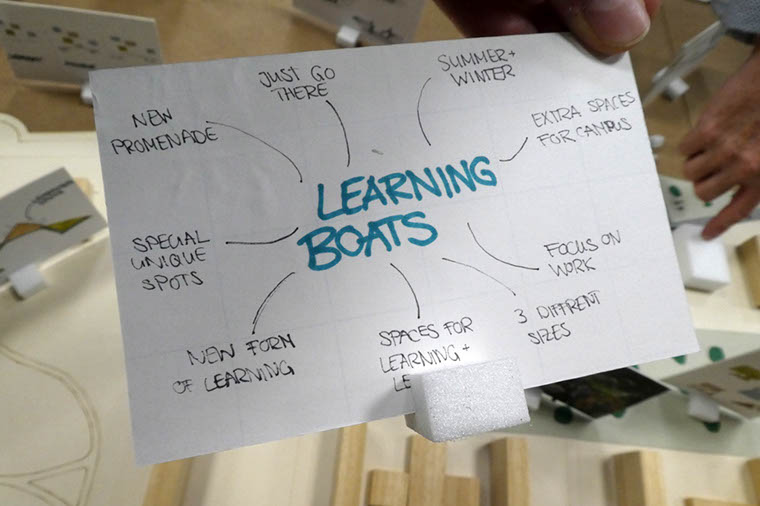 LEARNING
BOATS
JUST GO
THERE
SUMMER +
WINTER
EXTRA SPACES
FOR CAMPUS
FOCUS ON
WORK
3 DIFFRENT
SIZES
SPACES FOR
LEARNING +
LE
NEW FORM
OF LEARNING
SPECIAL
UNIQUE
SPOTS
NEW
PROMENADE